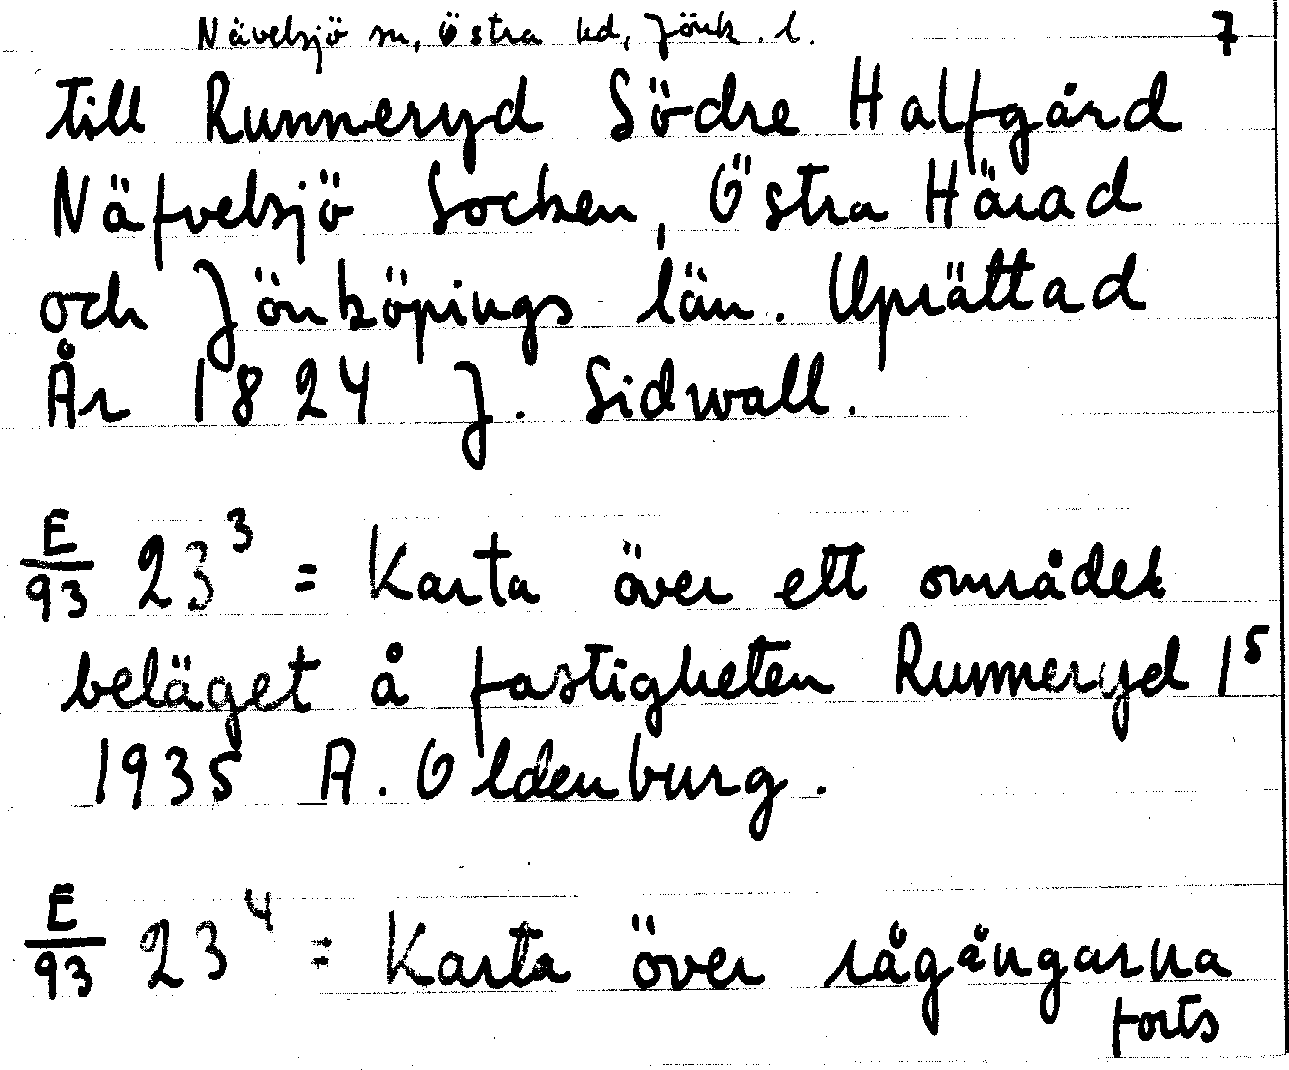 Nävelsjö sn, Östra hd, Jönk. l. 7
till Runneryd Södre Halfgård
Näfvelsjö Socken, Östra Härad
och Jönköpings län. Uprättad
År 1824 J. Sidwall.
E/93 23³ = Karta över ett området
beläget å fastigheten Runneryd 1⁵
1935 A. Oldenburg.
E/93 23⁴ = Karta över rågångarna
forts